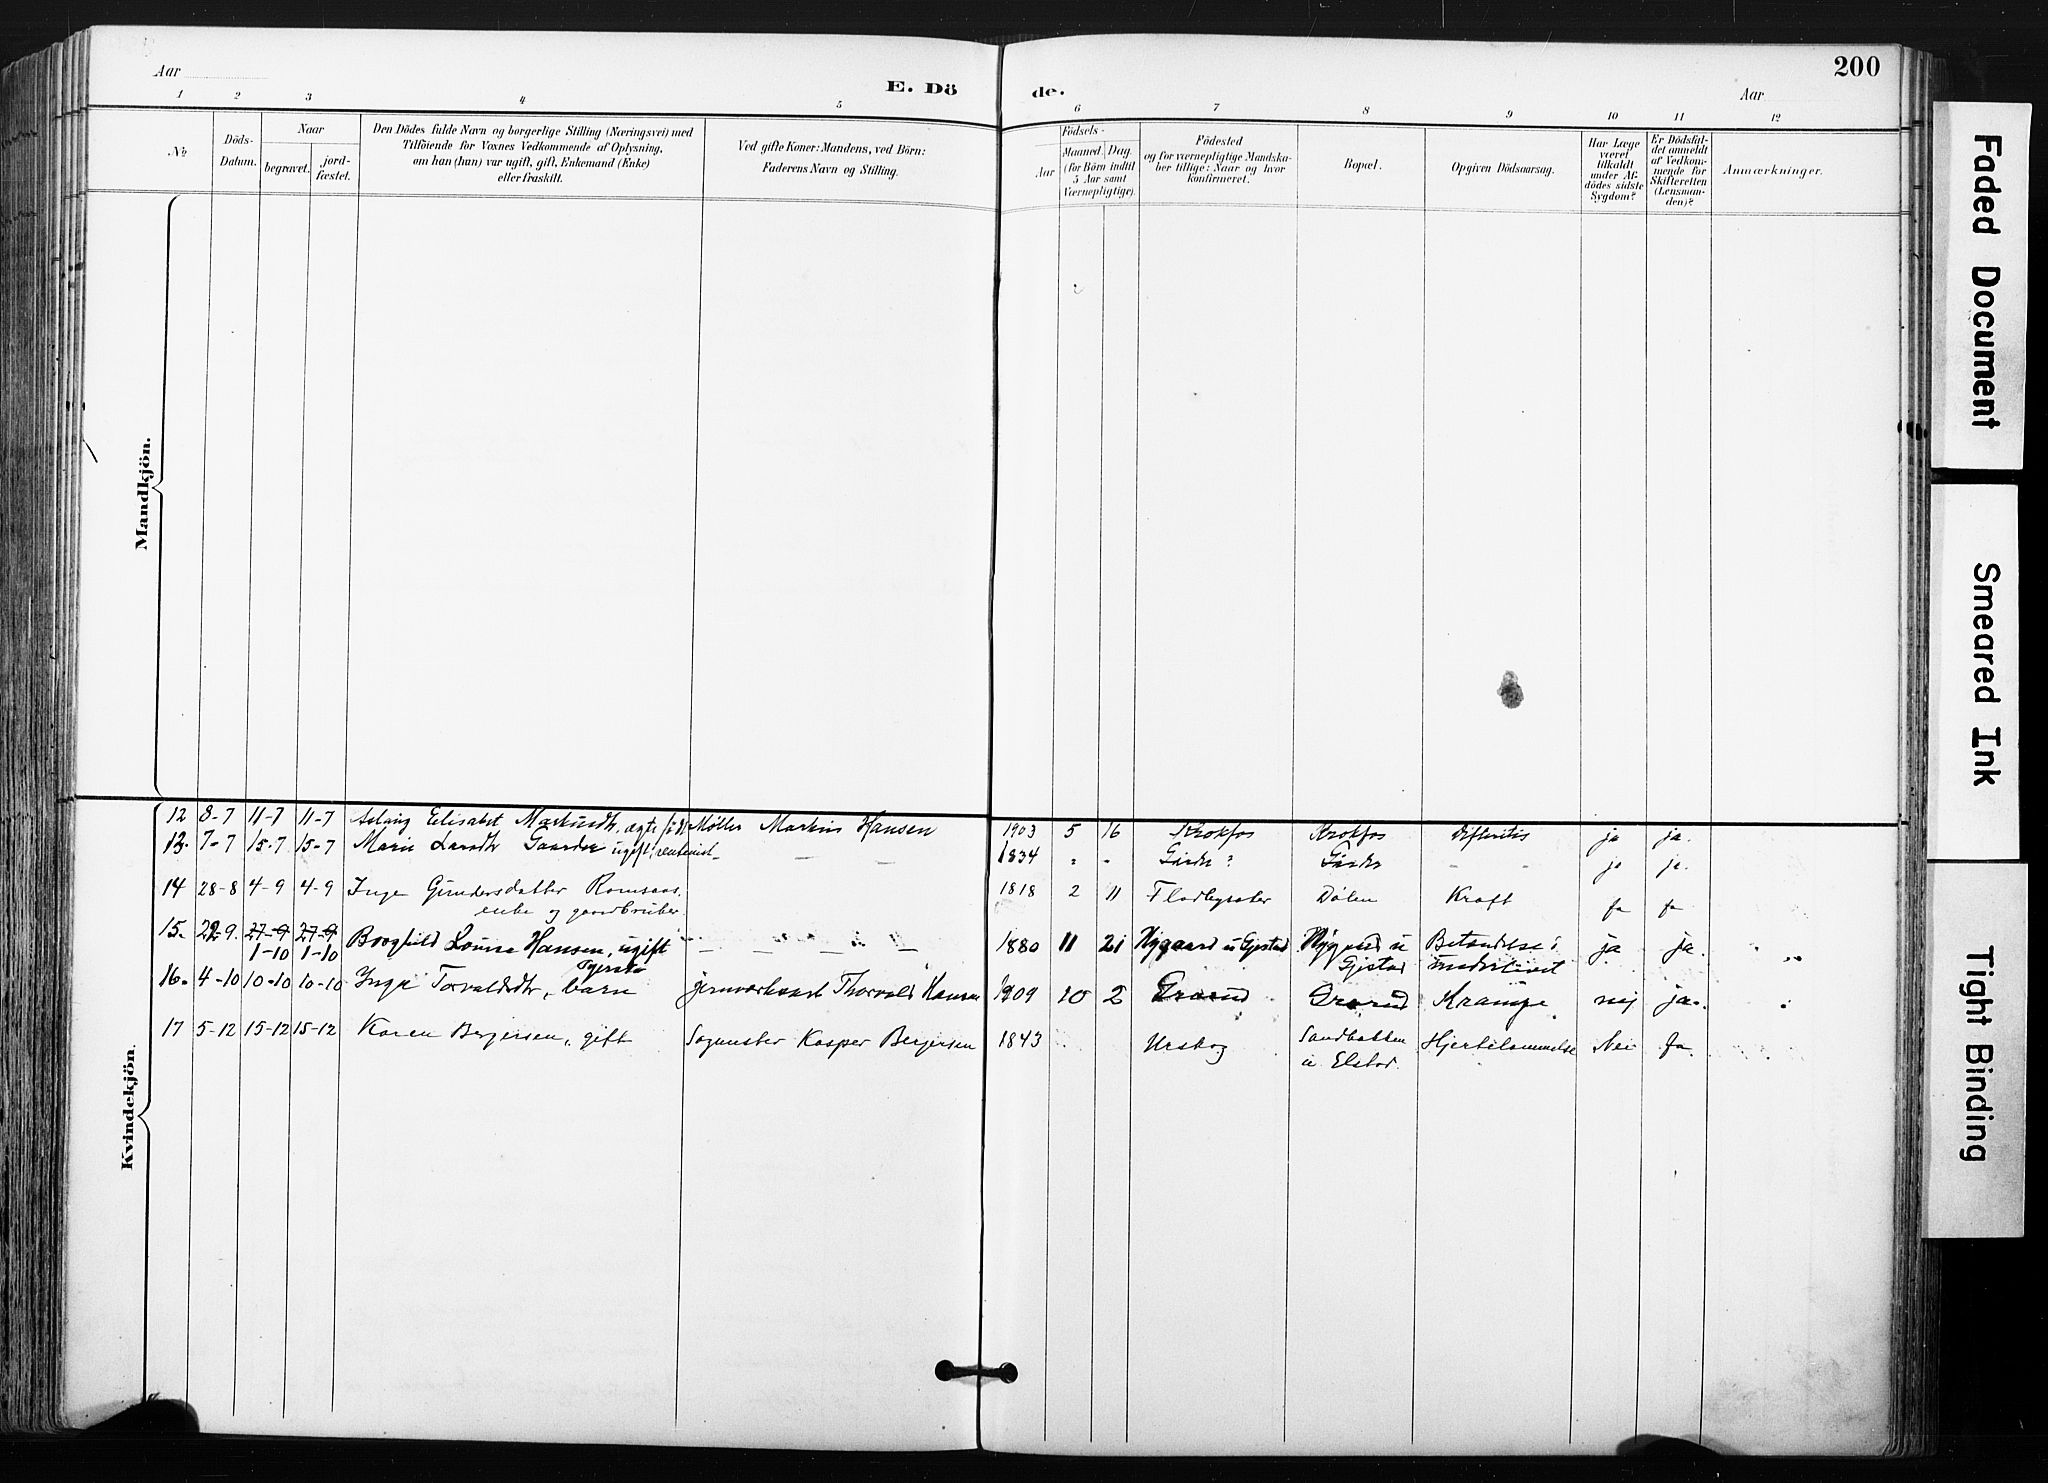 Aar
E. Dö
de.
Aar
200
1 2 3 4 5 6 7 8 9 10 11 12
№
Döds-
Datum.
Naar
begravet.
jord-
fæstet.
Den Dödes fulde Navn og borgerlige Stilling (Næringsvei) med
Tilföiende for Voxnes Vedkommende af Oplysning,
om han (hun) var ugift, gift, Enkemand (Enke)
eller fraskilt.
Ved gifte Koner: Mandens, ved Börn:
Faderens Navn og Stilling.
Födsels-
Aar
Maaned. Dag.
(for Börn indtil
5 Aar samt
Værnepligtige).
Födested
og for værnepligtige Mandska-
ber tillige: Naar og hvor
konfirmeret.
Bopæl.
Opgiven Dödsaarsag.
Har Læge
været
tilkaldt
under Af-
dödes sidste
Sygdom?
Er Dödsfal-
det anmeldt
af Vedkom-
mende for
Skifteretten
(Lensman-
den)?
Anmærkninger.
Mandkjön.
Kvindekjön.
12 8-7 11-7 11-7 Aslaug Elisabet ægte født Møller Martin Hansen 1903 5 16 Krokfos Krokfos Difteritis ja ja.
13. 7-7 15-7 15-7 Marie Larsdtr Gaarder ugift, rentenist — — — 1834 " " Gårder ? Gårder — — ja ja.
14 28-8 4-9 4-9 Inge Gundersdatter Romsaas, 1818 2 11 Dølen Kræft Ja Ja
enke og gaardbruker.
15. 22-9. 27-9 27-9 Borghild Louise Hansen, ugift — — — — 1880 11 21 Nygaard u Gjestad Nygaard u Betændelse i ja ja.
1-10 1-10 Gjestad underlivet
16. 4-10 10-10 10-10 Inga Torvaldsdtr, barn Thorvald Hansen 1909 10 2 Krampe nej ja.
17 5-12 15-12 15-12 Karen Bergersen, gift Sagmester Kasper Bergersen 1843 Urskog Sandbakken Hjertelammelse Nei Ja.
u. Elstad.
Faded Document
Smeared Ink
Tight Binding